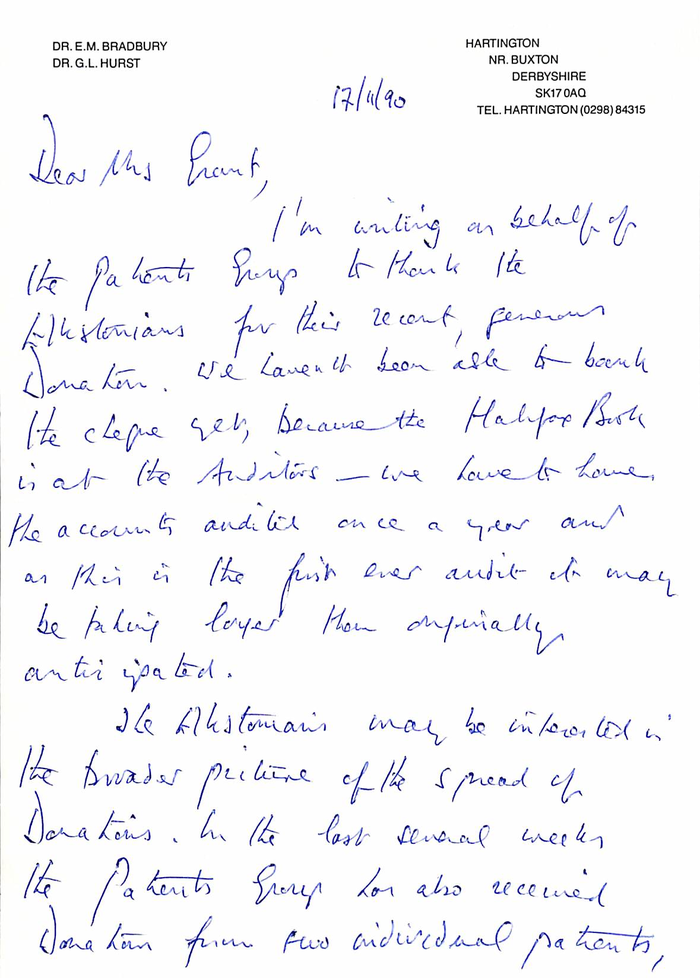 DR. E.M. BRADBURY
DR. G.L. HURST
HARTINGTON
NR. BUXTON
DERBYSHIRE
SK17 0AQ
TEL. HARTINGTON (0298) 84315
17/11/90
Dear Mrs Grant,
I'm writing on behalf of
the Patients Group to thank the
Alkstonians for their recent, generous
Donation. We haven't been able to bank
the cheque yet, because the Halifax Book
is at the Auditors — we have to have
the accounts audited once a year and
as this is the first ever audit it may
be taking longer than originally
anticipated.
The Alkstonians may be interested in
the broader picture of the spread of
Donations. In the last several weeks
the Patients Group has also received
Donation from two individual patients,